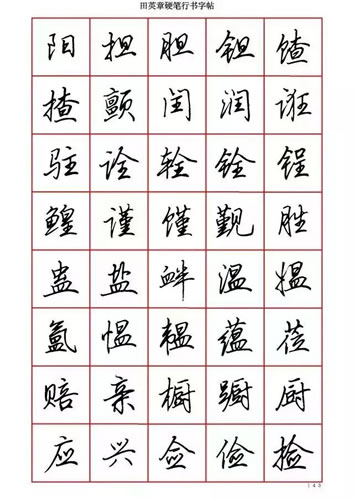 田英章硬笔行书字帖
阳担胆钽馇
揸颤闰润诳
驻诠轾铨锃
鳇谨馑觐胜
蛊盐衅温媪
氲愠韫蕴莅
赔亲橱蹰厨
应兴佥俭捡
143